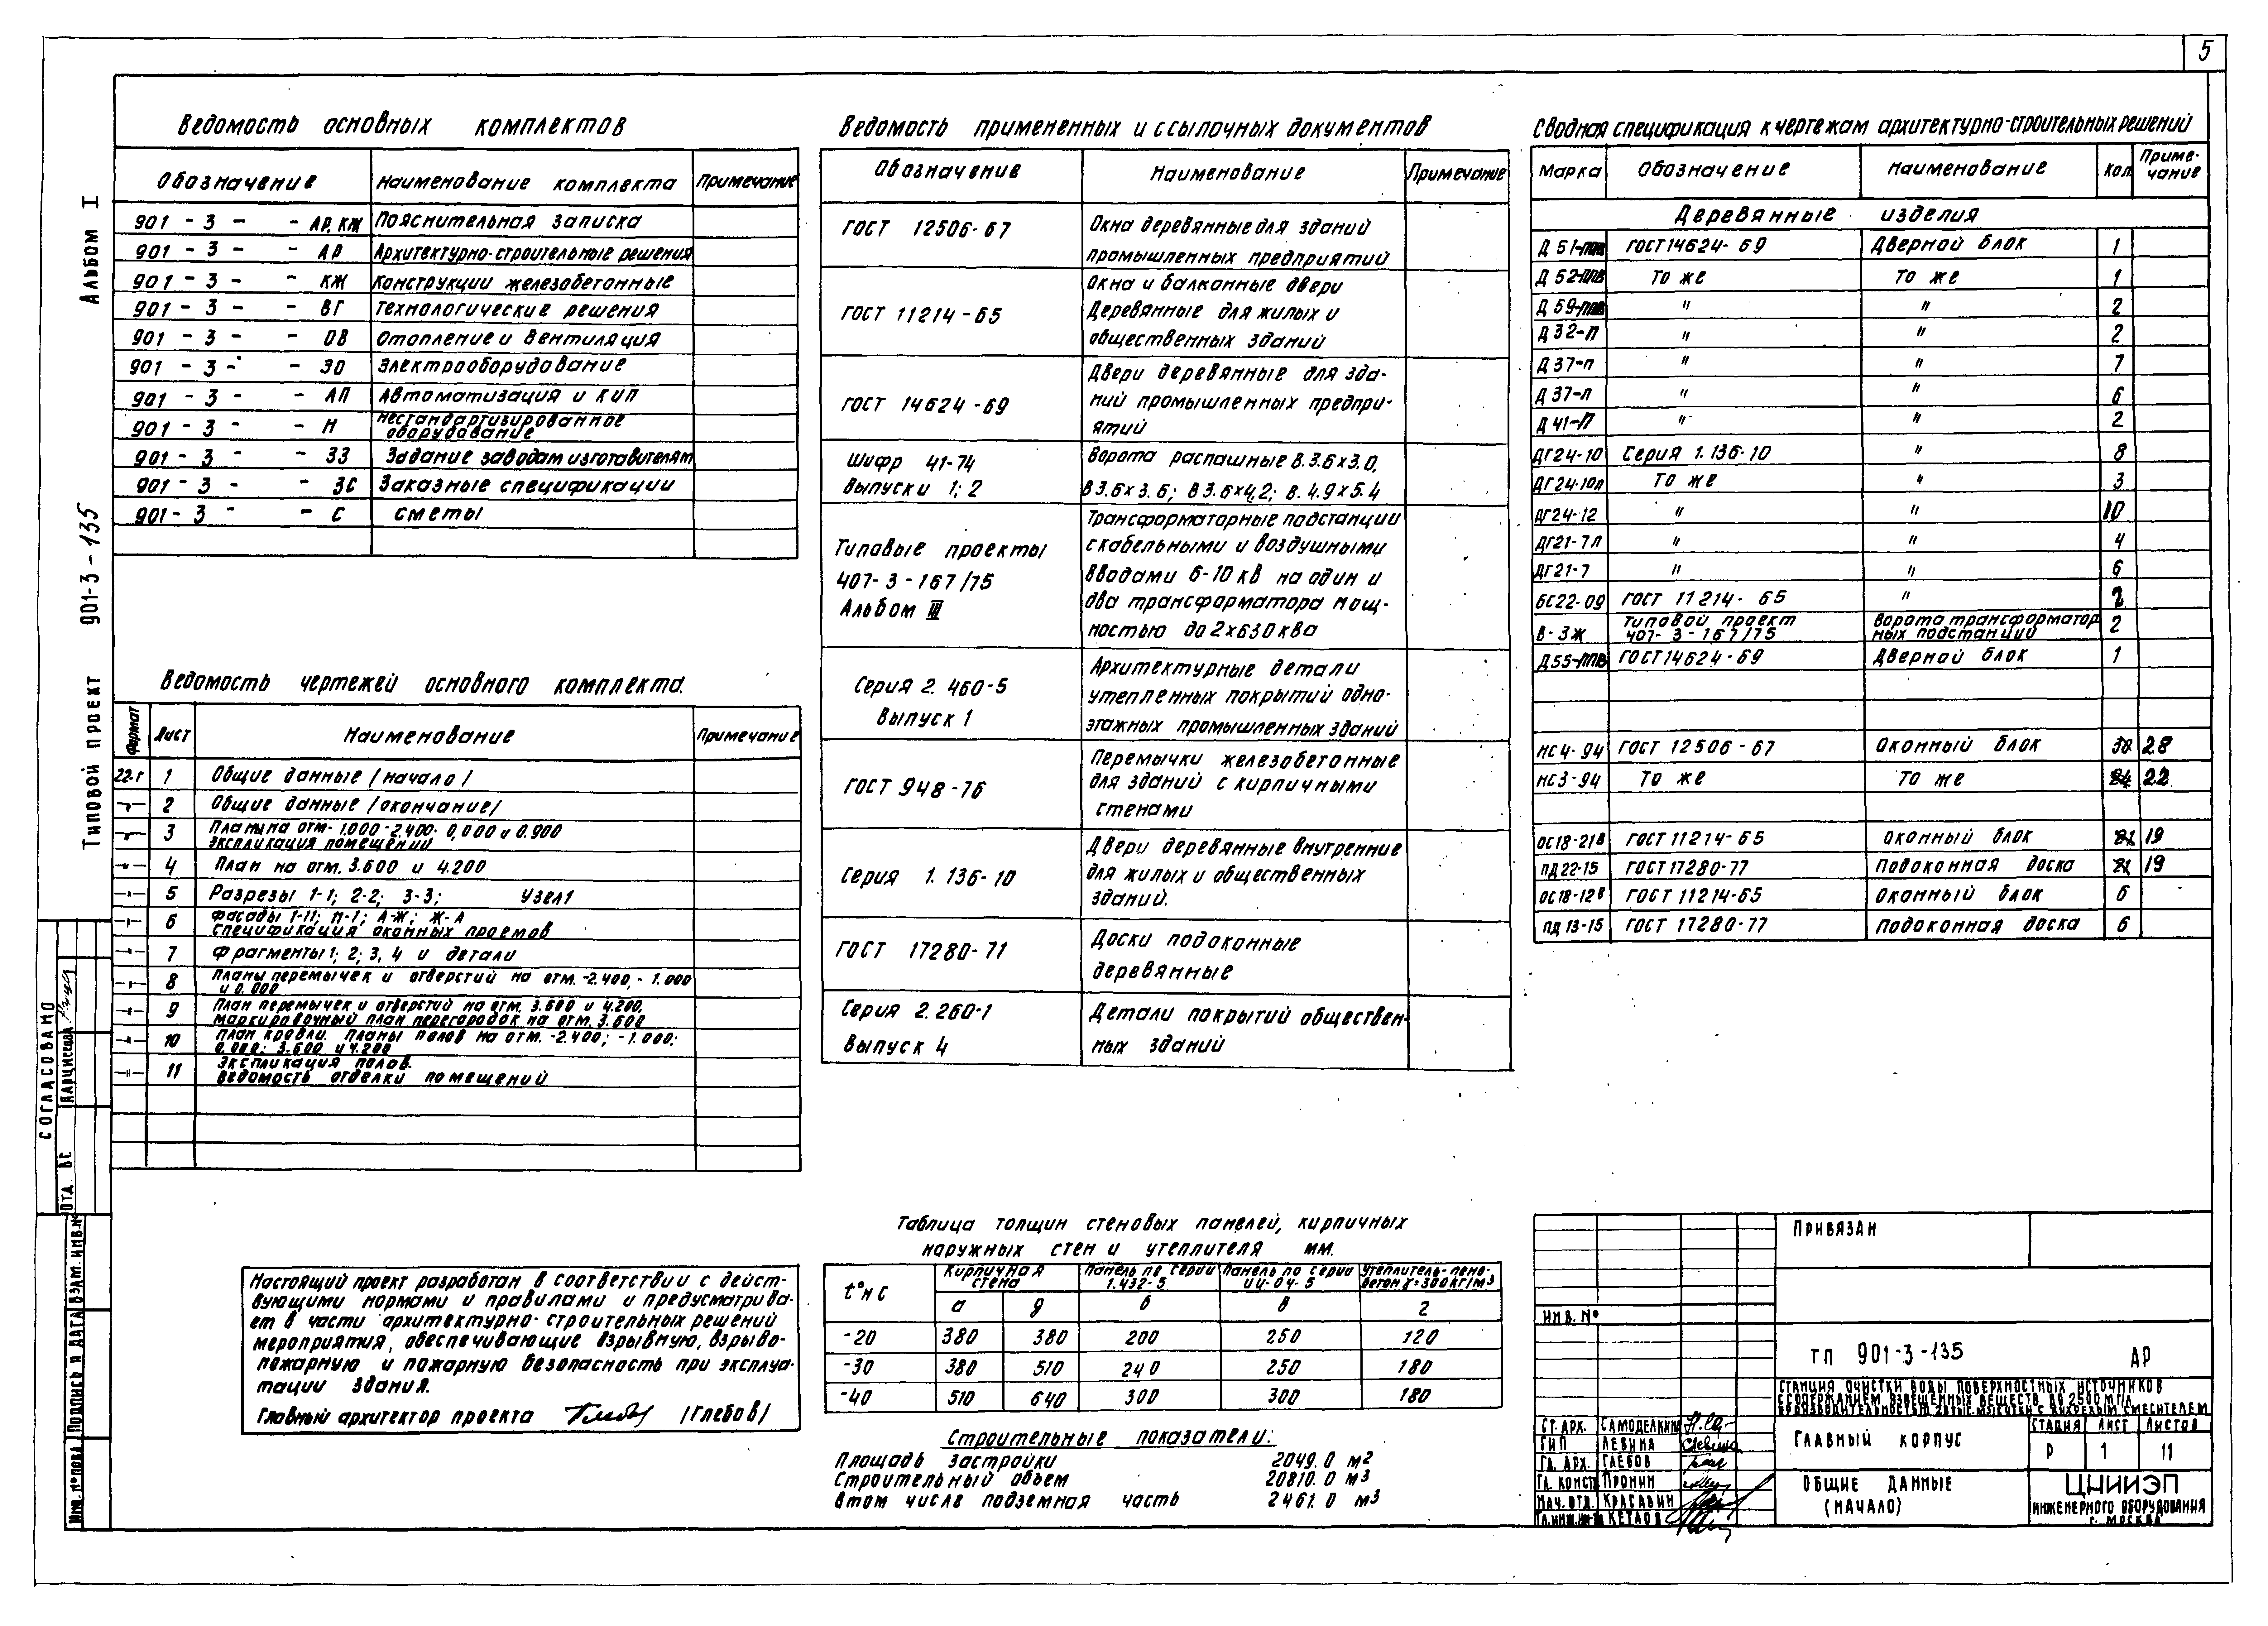 5
Альбом I
Типовой проект 901-3-135
Ведомость основных комплектов
Обозначение Наименование комплекта Примечание
901 - 3 - - АР, КЖ Пояснительная записка
901 - 3 - - АР Архитектурно-строительные решения
901 - 3 - - КЖ Конструкции железобетонные
901 - 3 - - ВГ Технологические решения
901 - 3 - - ОВ Отопление и вентиляция
901 - 3 - - ЭО Электрооборудование
901 - 3 - - АП Автоматизация и КИП
901 - 3 - - Н Нестандартизированное
оборудование
901 - 3 - - ЗЗ Задание заводам изготовителям
901 - 3 - - ЗС Заказные спецификации
901 - 3 - - С сметы
Ведомость чертежей основного комплекта.
Формат Лист Наименование Примечание
22.г 1 Общие данные /начало/
—"— 2 Общие данные /окончание/
—"— 3 Планы на отм- 1.000 -2.400. 0,000 и 0.900
экспликация помещений
—"— 4 План на отм. 3.600 и 4.200
—"— 5 Разрезы 1-1; 2-2; 3-3; Узел 1
—"— 6 Фасады 1-11; 11-1; А-Ж; Ж-А
Спецификация оконных проемов
—"— 7 Фрагменты 1; 2; 3, 4 и детали
—"— 8 Планы перемычек и отверстий на отм. -2.400, - 1.000
и 0.000
—"— 9 План перемычек и отверстий на отм. 3.600 и 4.200,
маркировочный план перегородок на отм. 3.600
—"— 10 План кровли. Планы полов на отм. -2.400; -1.000;
0.000; 3.600 и 4.200
—"— 11 Экспликация полов.
Ведомость отделки помещений
Настоящий проект разработан в соответствии с дейст-
вующими нормами и правилами и предусматрива-
ет в части архитектурно-строительных решений
мероприятия, обеспечивающие взрывную, взрыво-
пожарную и пожарную безопасность при эксплуа-
тации здания.
Главный архитектор проекта /Глебов/
Ведомость примененных и ссылочных документов
Обозначение Наименование Примечание
ГОСТ 12506-67 Окна деревянные для зданий
промышленных предприятий
ГОСТ 11214-65 Окна и балконные двери
Деревянные для жилых и
общественных зданий
ГОСТ 14624-69 Двери деревянные для зда-
ний промышленных предпри-
ятий
Шифр 41-74 Ворота распашные В.3.6х3.0,
Выпуски 1; 2 В 3.6х3.6; В 3.6х4.2; В. 4.9х5.4
Типовые проекты
407-3-167/75
Альбом III
Трансформаторные подстанции
с кабельными и воздушными
вводами 6-10 кв на один и
два трансформатора мощ-
ностью до 2х630 ква
Серия 2. 460-5
Выпуск 1
Архитектурные детали
утепленных покрытий одно-
этажных промышленных зданий
ГОСТ 948-76 Перемычки железобетонные
для зданий с кирпичными
стенами
Серия 1. 136-10 Двери деревянные внутренние
для жилых и общественных
зданий.
ГОСТ 17280-71 Доски подоконные
деревянные
Серия 2.260-1 Детали покрытий обществен-
Выпуск 4 ных зданий
Таблица толщин стеновых панелей, кирпичных
наружных стен и утеплителя мм.
t°н С Кирпичная стена Панель по серии 1.432-5 Панель по серии ИИ-04-5 Утеплитель-пено-
бетон γ=300кг/м3
а д б в г
-20 380 380 200 250 120
-30 380 510 240 250 180
-40 510 640 300 300 180
Строительные показатели:
Площадь застройки 2049.0 м2
Строительный объем 20810.0 м3
В том числе подземная часть 2461.0 м3
Сводная спецификация к чертежам архитектурно-строительных решений
Марка Обозначение Наименование Кол. Приме-
чание
Деревянные изделия
Д 51-ппв ГОСТ 14624-69 Дверной блок 1
Д 52-ппв То же То же 1
Д 59-ппв " " 2
Д 32-П " " 2
Д 37-п " " 7
Д 37-л " " 6
Д 41-П " " 2
ДГ24-10 Серия 1.136-10 " 8
ДГ24-10л То же " 3
ДГ24-12 " " 10
ДГ21-7л " " 4
ДГ21-7 " " 6
БС22-09 ГОСТ 11214-65 " 2
В-3ж Типовой проект
407-3-167/75 Ворота трансформатор
ных подстанций 2
Д55-ппв ГОСТ 14624-69 Дверной блок 1
НС4-94 ГОСТ 12506-67 Оконный блок 28
НС3-94 То же То же 22
ОС18-21В ГОСТ 11214-65 Оконный блок 19
ПД22-15 ГОСТ 17280-77 Подоконная доска 19
ОС18-12В ГОСТ 11214-65 Оконный блок 6
ПД 13-15 ГОСТ 17280-77 Подоконная доска 6
Привязан
Инв. №
ТП 901-3-135 АР
Станция очистки воды поверхностных источников
с содержанием взвешенных веществ до 2500 мг/л
Главный корпус
Стадия Лист Листов
Р 1 11
Общие данные
(начало)
ЦНИИЭП
инженерного оборудования
г. Москва
Ст. арх. Самоделкина
ГИП Левина
Гл. арх. Глебов
Гл. конст. Пронин
Нач. отд. Красавин
Кетаов
Согласовано
Отд. ВС
Инв. № подл. Подпись и дата Взам. инв. №